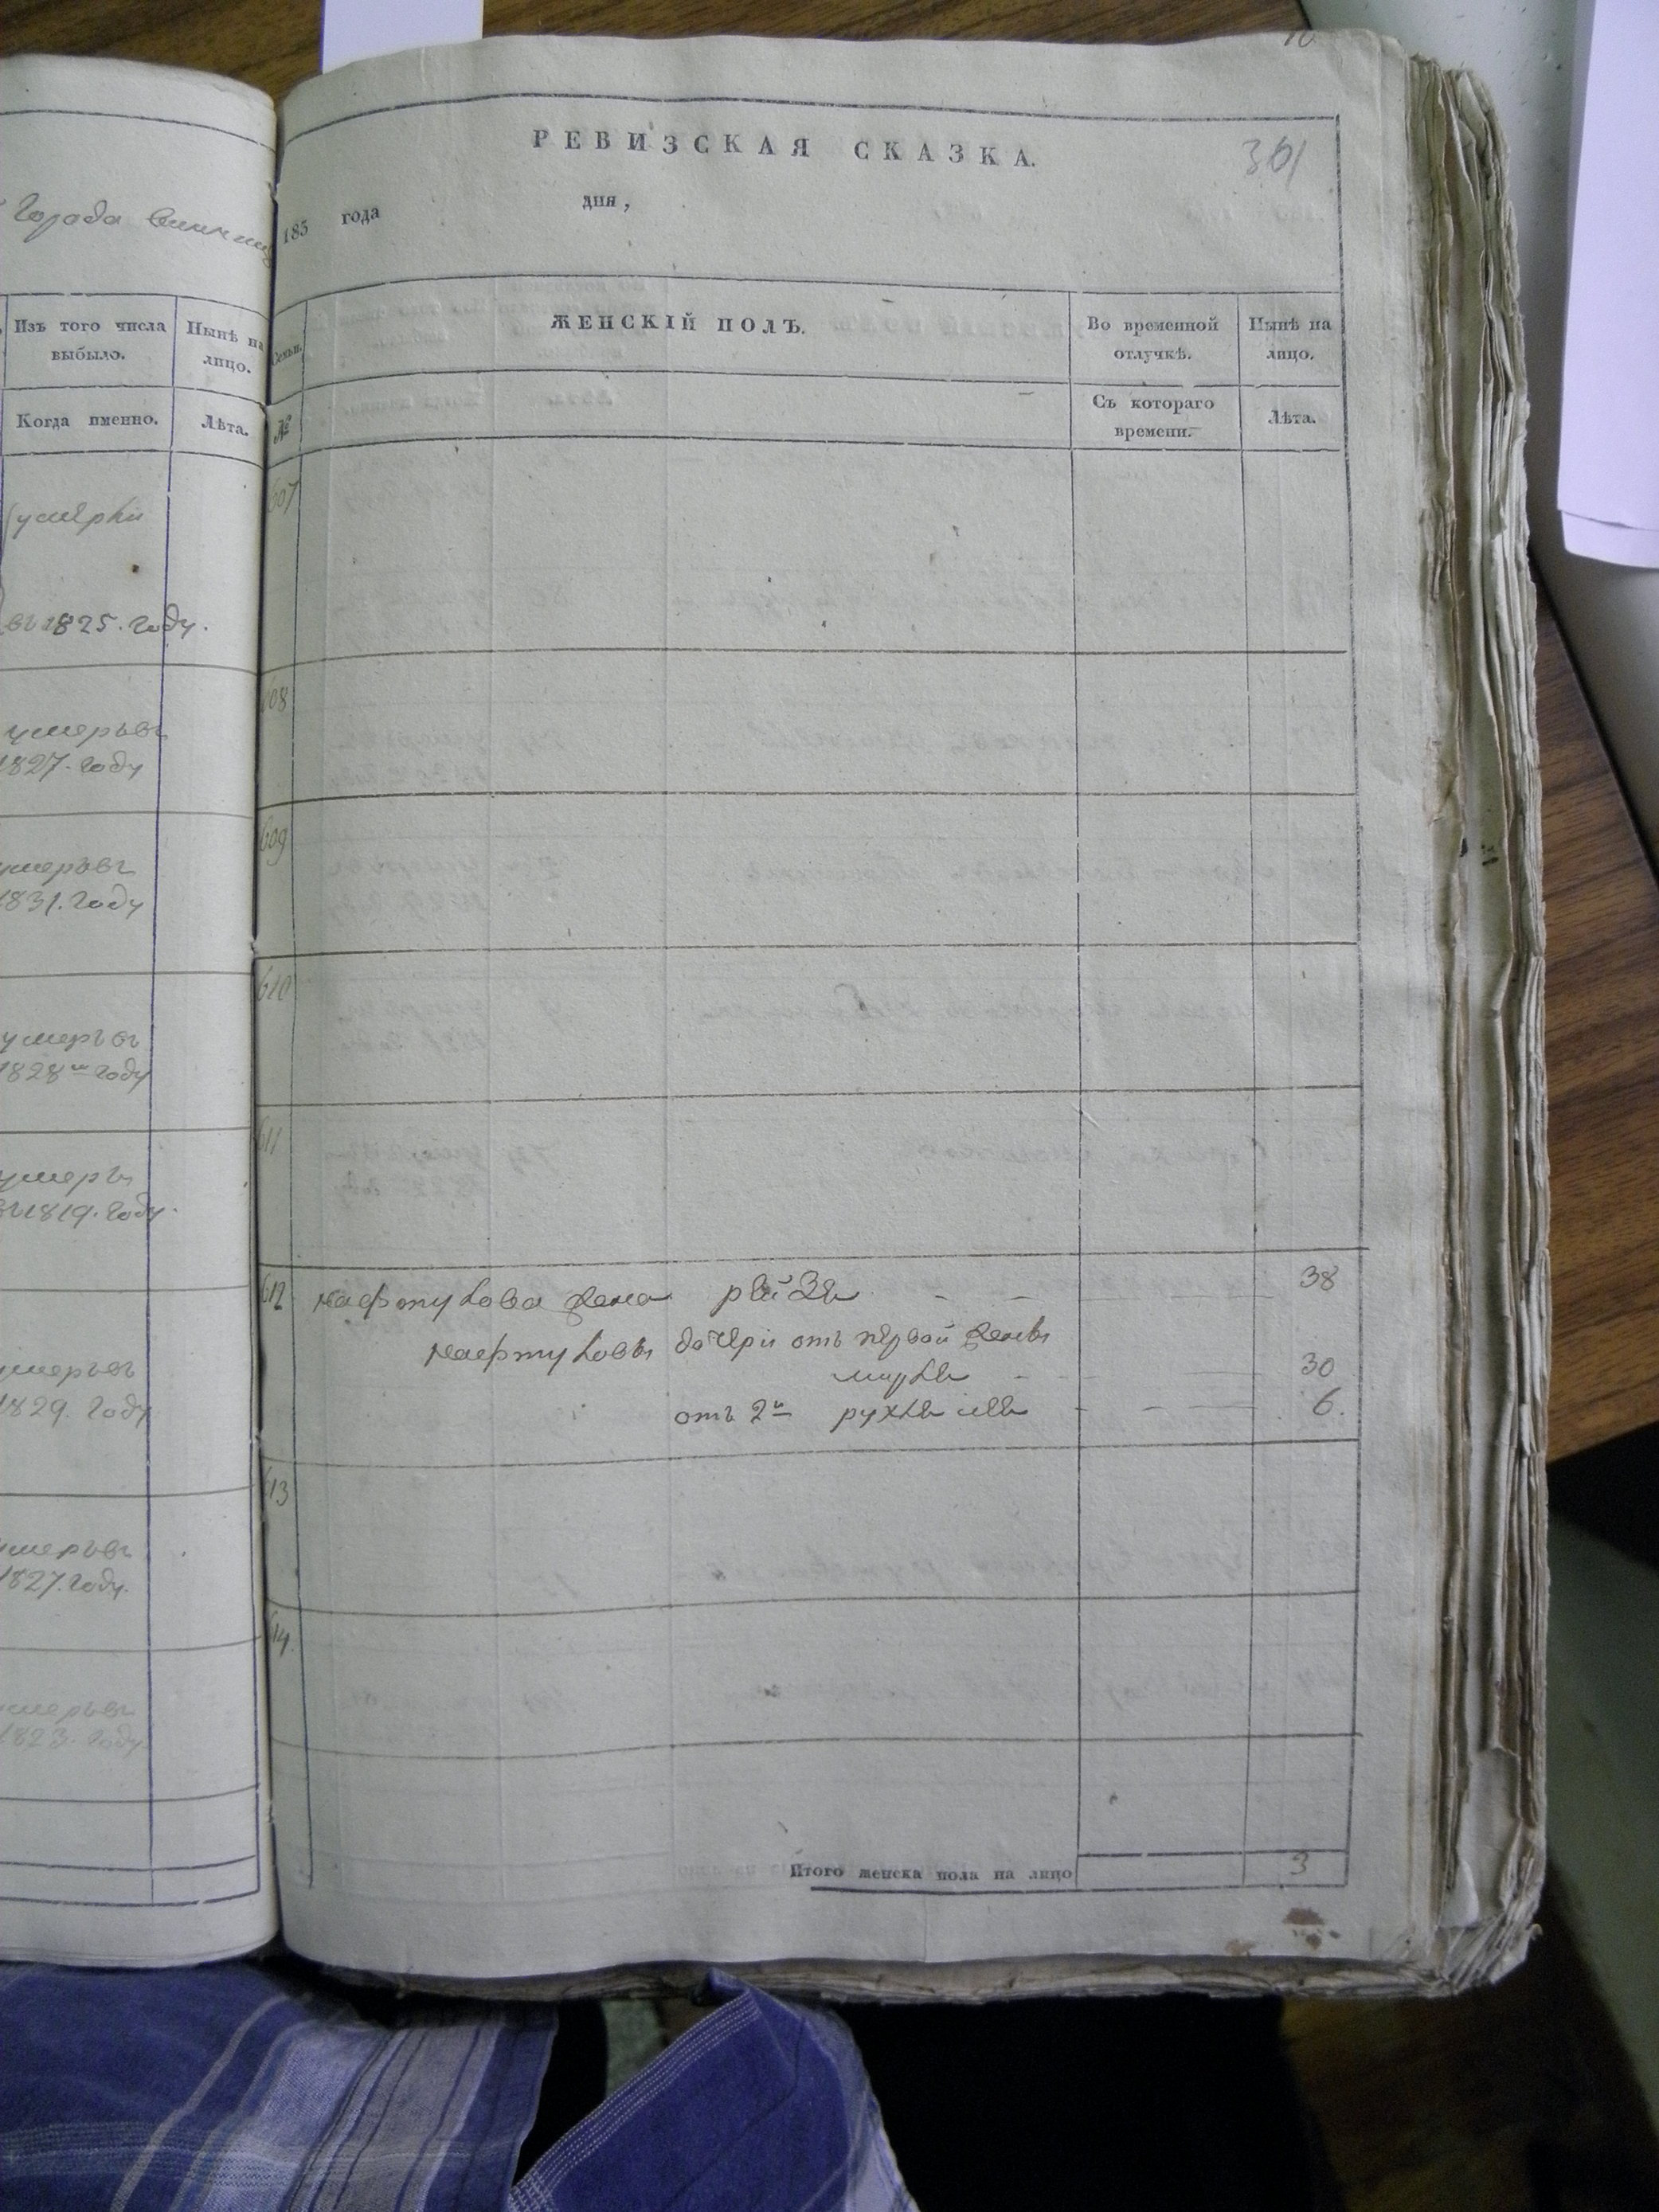 Города
Изъ того числа
выбыло.
Нынѣ на
лицо.
Когда именно.
Лѣта.
умерли
въ 1825. году.
умеръ въ
1827. году
умеръ въ
1831. году
умеръ въ
1828м году
умеръ
въ 1819. году.
умеръ въ
1829. году
умеръ въ
1827. году.
умеръ въ
1823. году
РЕВИЗСКАЯ СКАЗКА.
361
183 года дня,
Семьи.
ЖЕНСКІЙ ПОЛЪ.
Во временной
отлучкѣ.
Нынѣ на
лицо.
№
Съ котораго
времени.
Лѣта.
607
608
609
610
611
612 Нафтулова жена Рейзя 38
Нафтуловы дочери отъ первой жены
30
отъ 2й 6.
613
614.
Итого женска пола на лицо 3